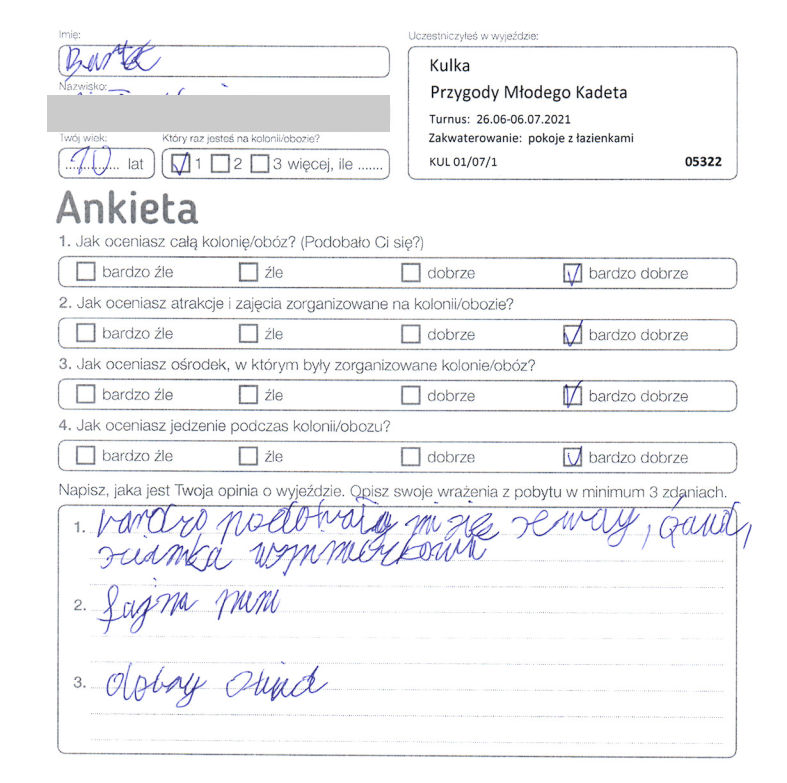 Imię:
Bartek
Uczestniczyłeś w wyjeździe:
Kulka
Przygody Młodego Kadeta
Turnus: 26.06-06.07.2021
Zakwaterowanie: pokoje z łazienkami
KUL 01/07/1 05322
Nazwisko:
Twój wiek:
10 lat
Który raz jesteś na kolonii/obozie?
1 2 3 więcej, ile .......
Ankieta
1. Jak oceniasz całą kolonię/obóz? (Podobało Ci się?)
bardzo źle źle dobrze bardzo dobrze
2. Jak oceniasz atrakcje i zajęcia zorganizowane na kolonii/obozie?
bardzo źle źle dobrze bardzo dobrze
3. Jak oceniasz ośrodek, w którym były zorganizowane kolonie/obóz?
bardzo źle źle dobrze bardzo dobrze
4. Jak oceniasz jedzenie podczas kolonii/obozu?
bardzo źle źle dobrze bardzo dobrze
Napisz, jaka jest Twoja opinia o wyjeździe. Opisz swoje wrażenia z pobytu w minimum 3 zdaniach.
1. bardzo podobały mi się
ścianka
2. fajna
3. dobry obiad